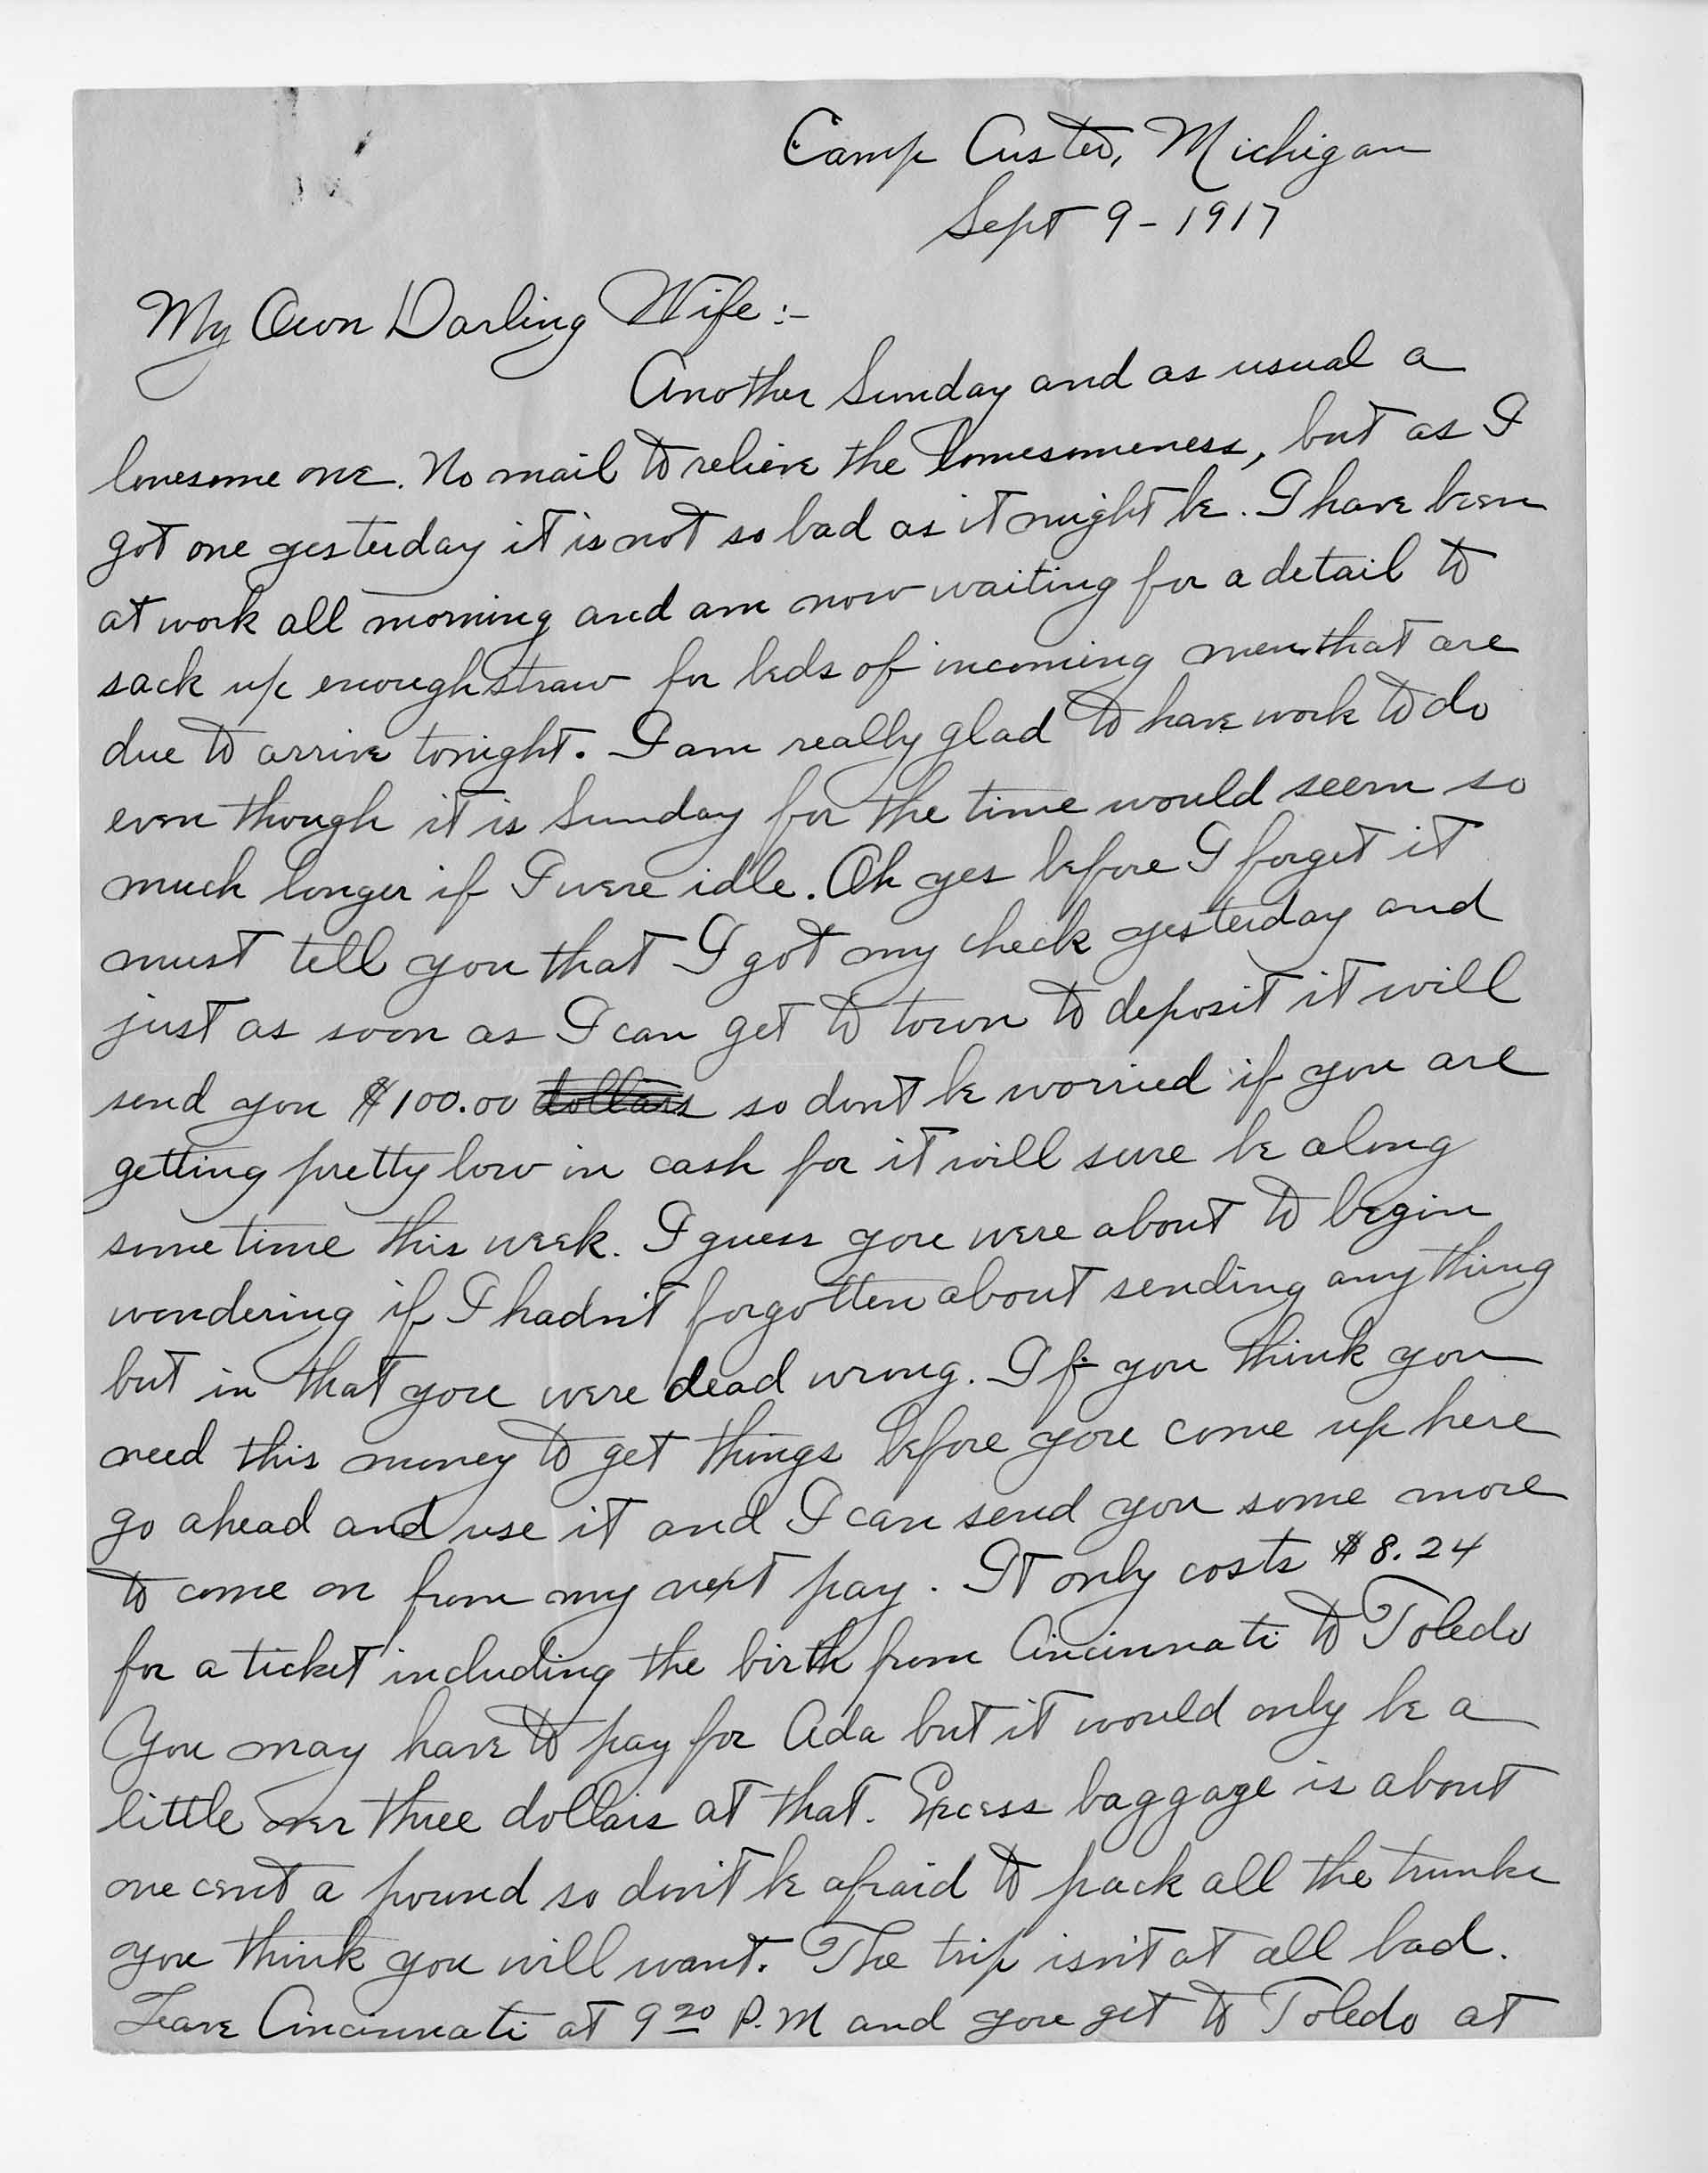 Camp Custer, Michigan
Sept 9-1917
My Own Darling Wife:-
Another Sunday and as usual a
lonesome one. No mail to relieve the lonesomeness, but as I
got one yesterday it is not so bad as it might be. I have been
at work all morning and am now waiting for a detail to
sack up enough straw for beds of incoming men that are
due to arrive tonight. I am really glad to have work to do
even though it is Sunday for the time would seem so
much longer if I were idle. Oh yes before I forget it
must tell you that I got my check yesterday and
just as soon as I can get to town to deposit it will
send you $100.00 dollars so dont be worried if you are
getting pretty low in cash for it will sure be along
sometime this week. I guess you were about to begin
wondering if I hadn't forgotten about sending anything
but in that you were dead wrong. If you think you
need this money to get things before you come up here
go ahead and use it and I can send you some more
to come on from my next pay. It only costs $8.24
for a ticket including the birth from Cincinnati to Toledo
You may have to pay for Ada but it would only be a
little over three dollars at that. Excess baggage is about
one cent a pound so don't be afraid to pack all the trunks
you think you will want. The trip isn't at all bad.
Leave Cincinnati at 9 20 P.M and you get to Toledo at